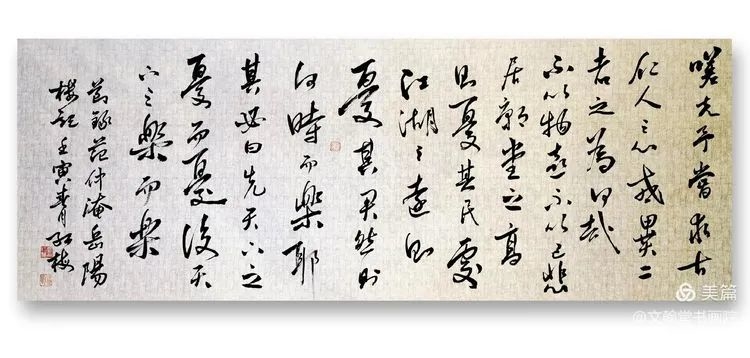 嗟夫予嘗求古
仁人之心或異二
者之為何哉
不以物喜不以己悲
居廟堂之高
則憂其民處
江湖之遠則
憂其君然則
何時而樂耶
其必曰先天下之
憂而憂後天
下之樂而樂
節錄范仲淹岳陽
樓記壬寅春月紅梅
美篇
@文翰堂书画院